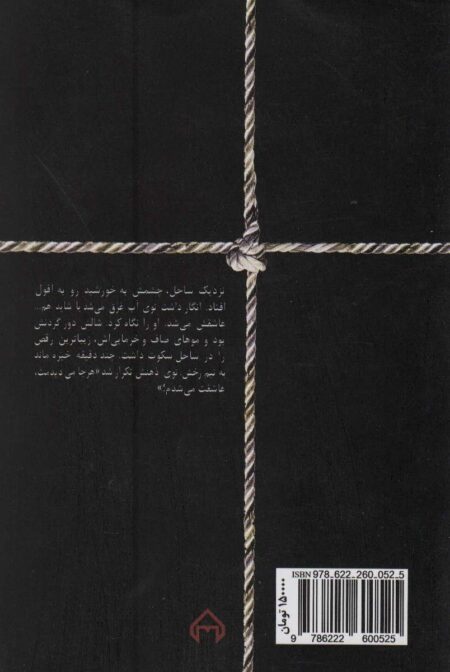 نزدیک ساحل، چشمش به خورشید رو به افول
افتاد. انگار داشت توی آب غرق می‌شد یا شاید هم...
عاشقش می‌شد. او را نگاه کرد. شالش دور گردنش
بود و موهای صاف و خرمایی‌اش، زیباترین رقص
را در ساحل سکوت داشت. چند دقیقه خیره ماند
به نیم رخش. توی ذهنش تکرار شد «هرجا می‌دیدمت،
عاشقت می‌شدم!»
ISBN 978_622_260_052_5
۱۵۰۰۰۰ تومان
9 786222 600525